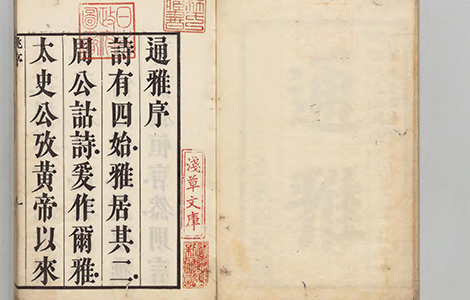 通雅序
詩有四始雅居其二
周公詁詩爰作爾雅
太史公攷黃帝以來
淺草文庫